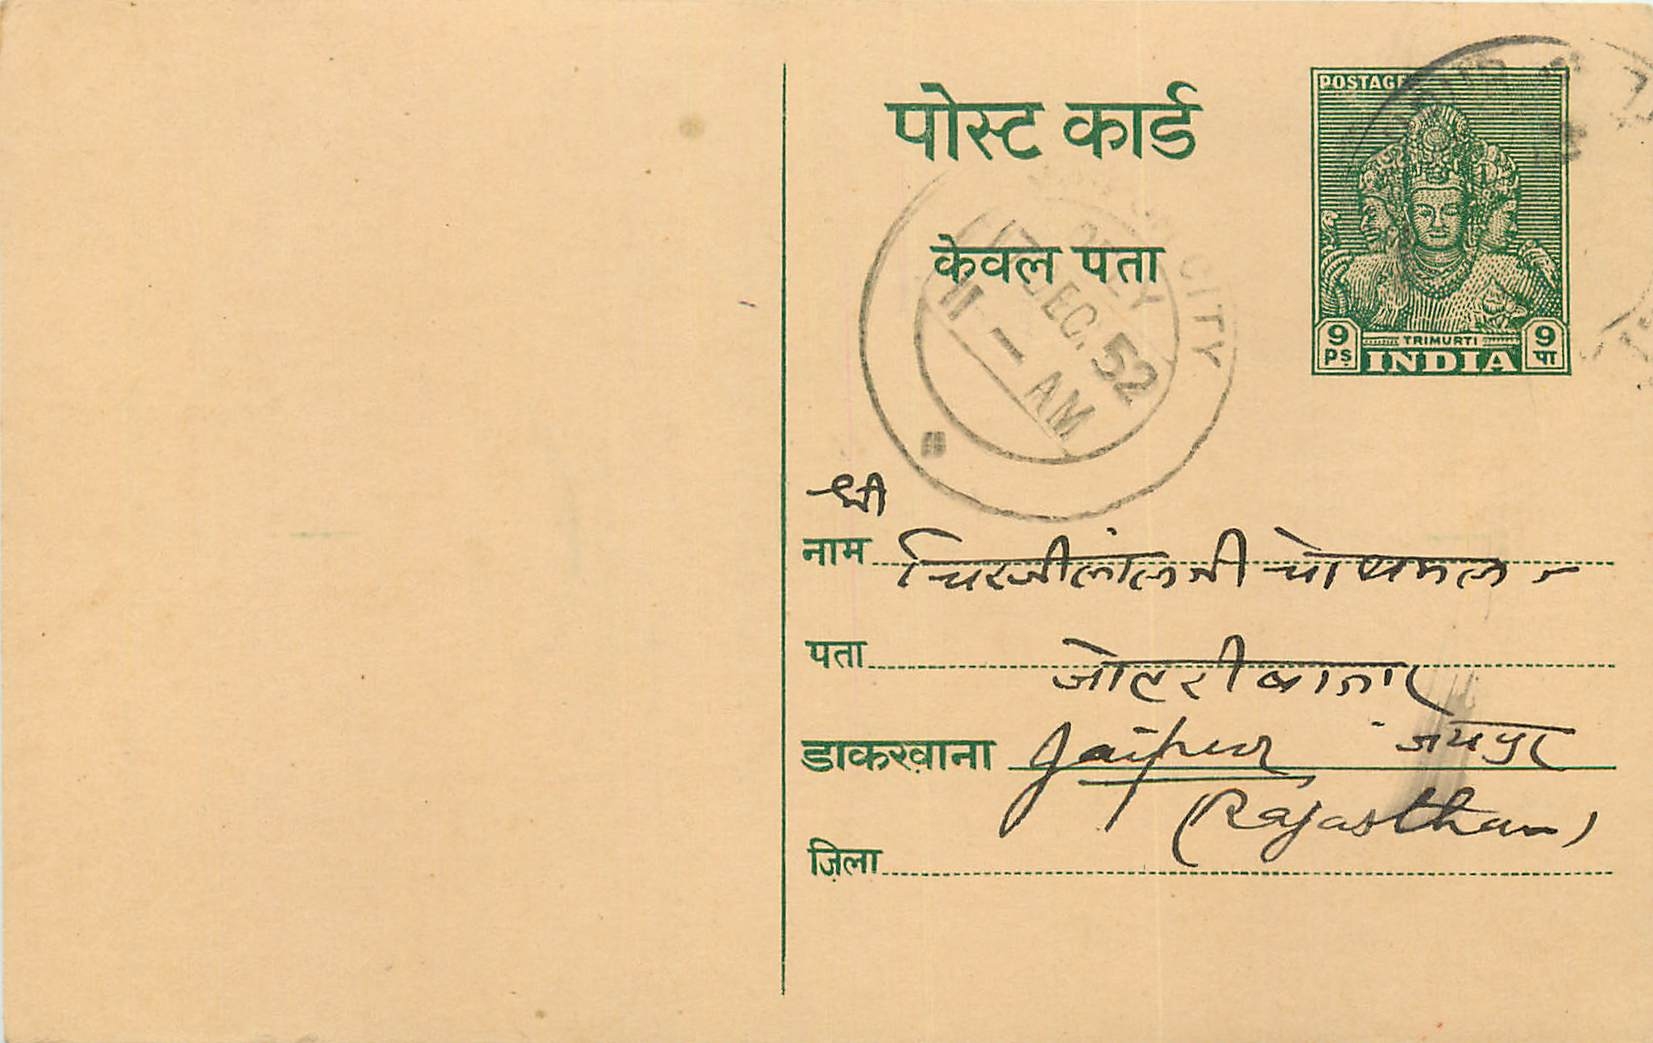 पोस्ट कार्ड
केवल पता
POSTAGE
9 PS
TRIMURTI
INDIA
9 पा
CITY
DELY
DEC. 52
11 - AM
श्री
नाम चिरंजीलालजी चोथमल
पता जोहरी बाजार
डाकखाना Jaipur जयपुर
(Rajasthan)
ज़िला